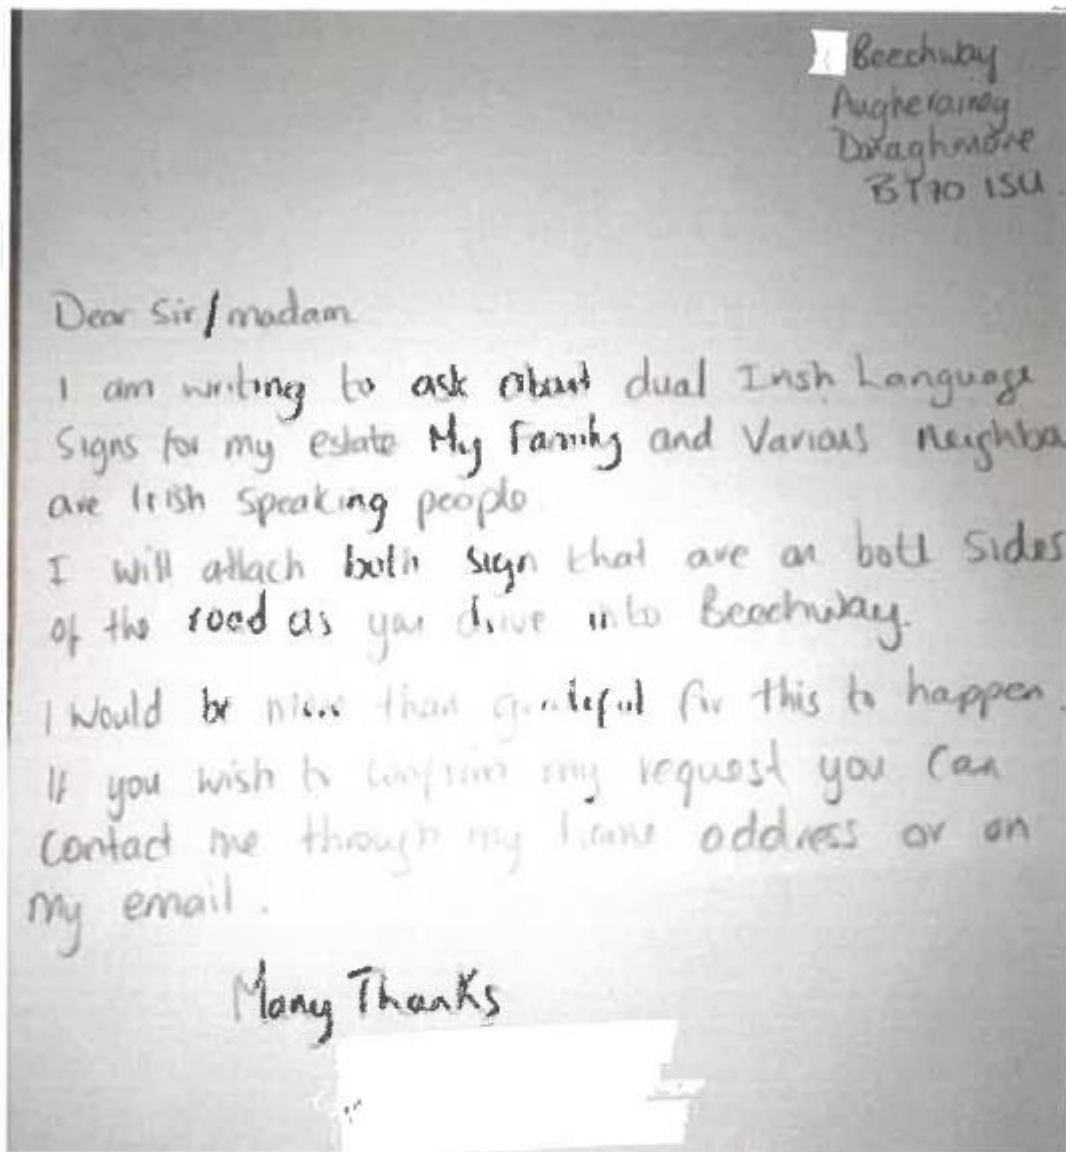 Beechway
Augherainey
Donaghmore
BT70 1SU
Dear Sir/madam
I am writing to ask about dual Irish Language
Signs for my estate My Family and Various neighbo
are Irish speaking people
I will attach both sign that are on both sides
of the road as you drive into Beechway.
I would be more than grateful for this to happen.
If you wish to confirm my request you can
contact me through my home address or on
my email.
Many Thanks